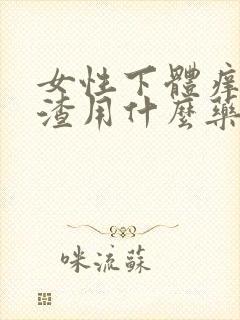 女性下體痒
渣用什麼藥
咪流蘇